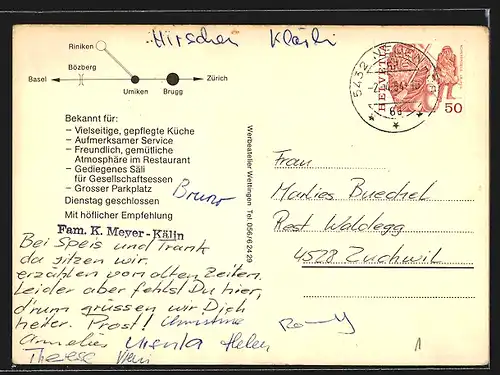 Hirschen Klärli
Riniken
Bözberg
Basel
Zürich
Umiken
Brugg
5432
HELVETIA
50
Bekannt für:
– Vielseitige, gepflegte Küche
– Aufmerksamer Service
– Freundlich, gemütliche
Atmosphäre im Restaurant
– Gediegenes Säli
für Gesellschaftsessen
– Grosser Parkplatz
Dienstag geschlossen
Mit höflicher Empfehlung
Fam. K. Meyer-Kälin
Bruno
Bei Speis und Trank
da sitzen wir.
erzählen von alten Zeiten.
Leider aber fehlst Du hier,
d'rum grüssen wir Dich
heiter. Prost! Christine
Annelies Ursula Helen
Therese
Werbeatelier Wettingen Tel. 056/6 24 29
Frau
Marlies Buechel
Rest Waldegg
4528 Zuchwil
1